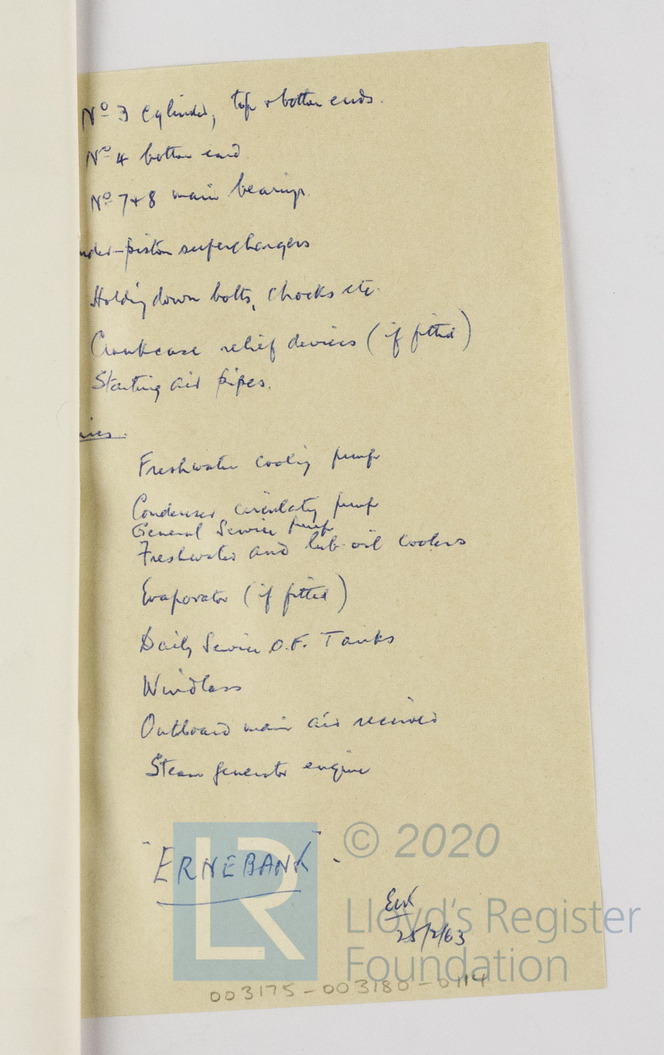 Nº 3 Cylinder, top & bottom ends.
Nº 4 bottom end
Nº 7 & 8 main bearings.
nder-piston superchargers
Holding down bolts, chocks etc.
Crankcase relief devices (if fitted)
Starting air pipes.
ries.
Freshwater cooling pump
Condenser circulatg pump
General Service pump
Freshwater and lub-oil coolers
Evaporator (if fitted)
Daily Service O.F. Tanks
Windlass
Outboard main air receiver
Steam generator engine
"ERNEBANK".
25/2/63
LR
© 2020
Lloyd's Register
Foundation
003175-003180-0114